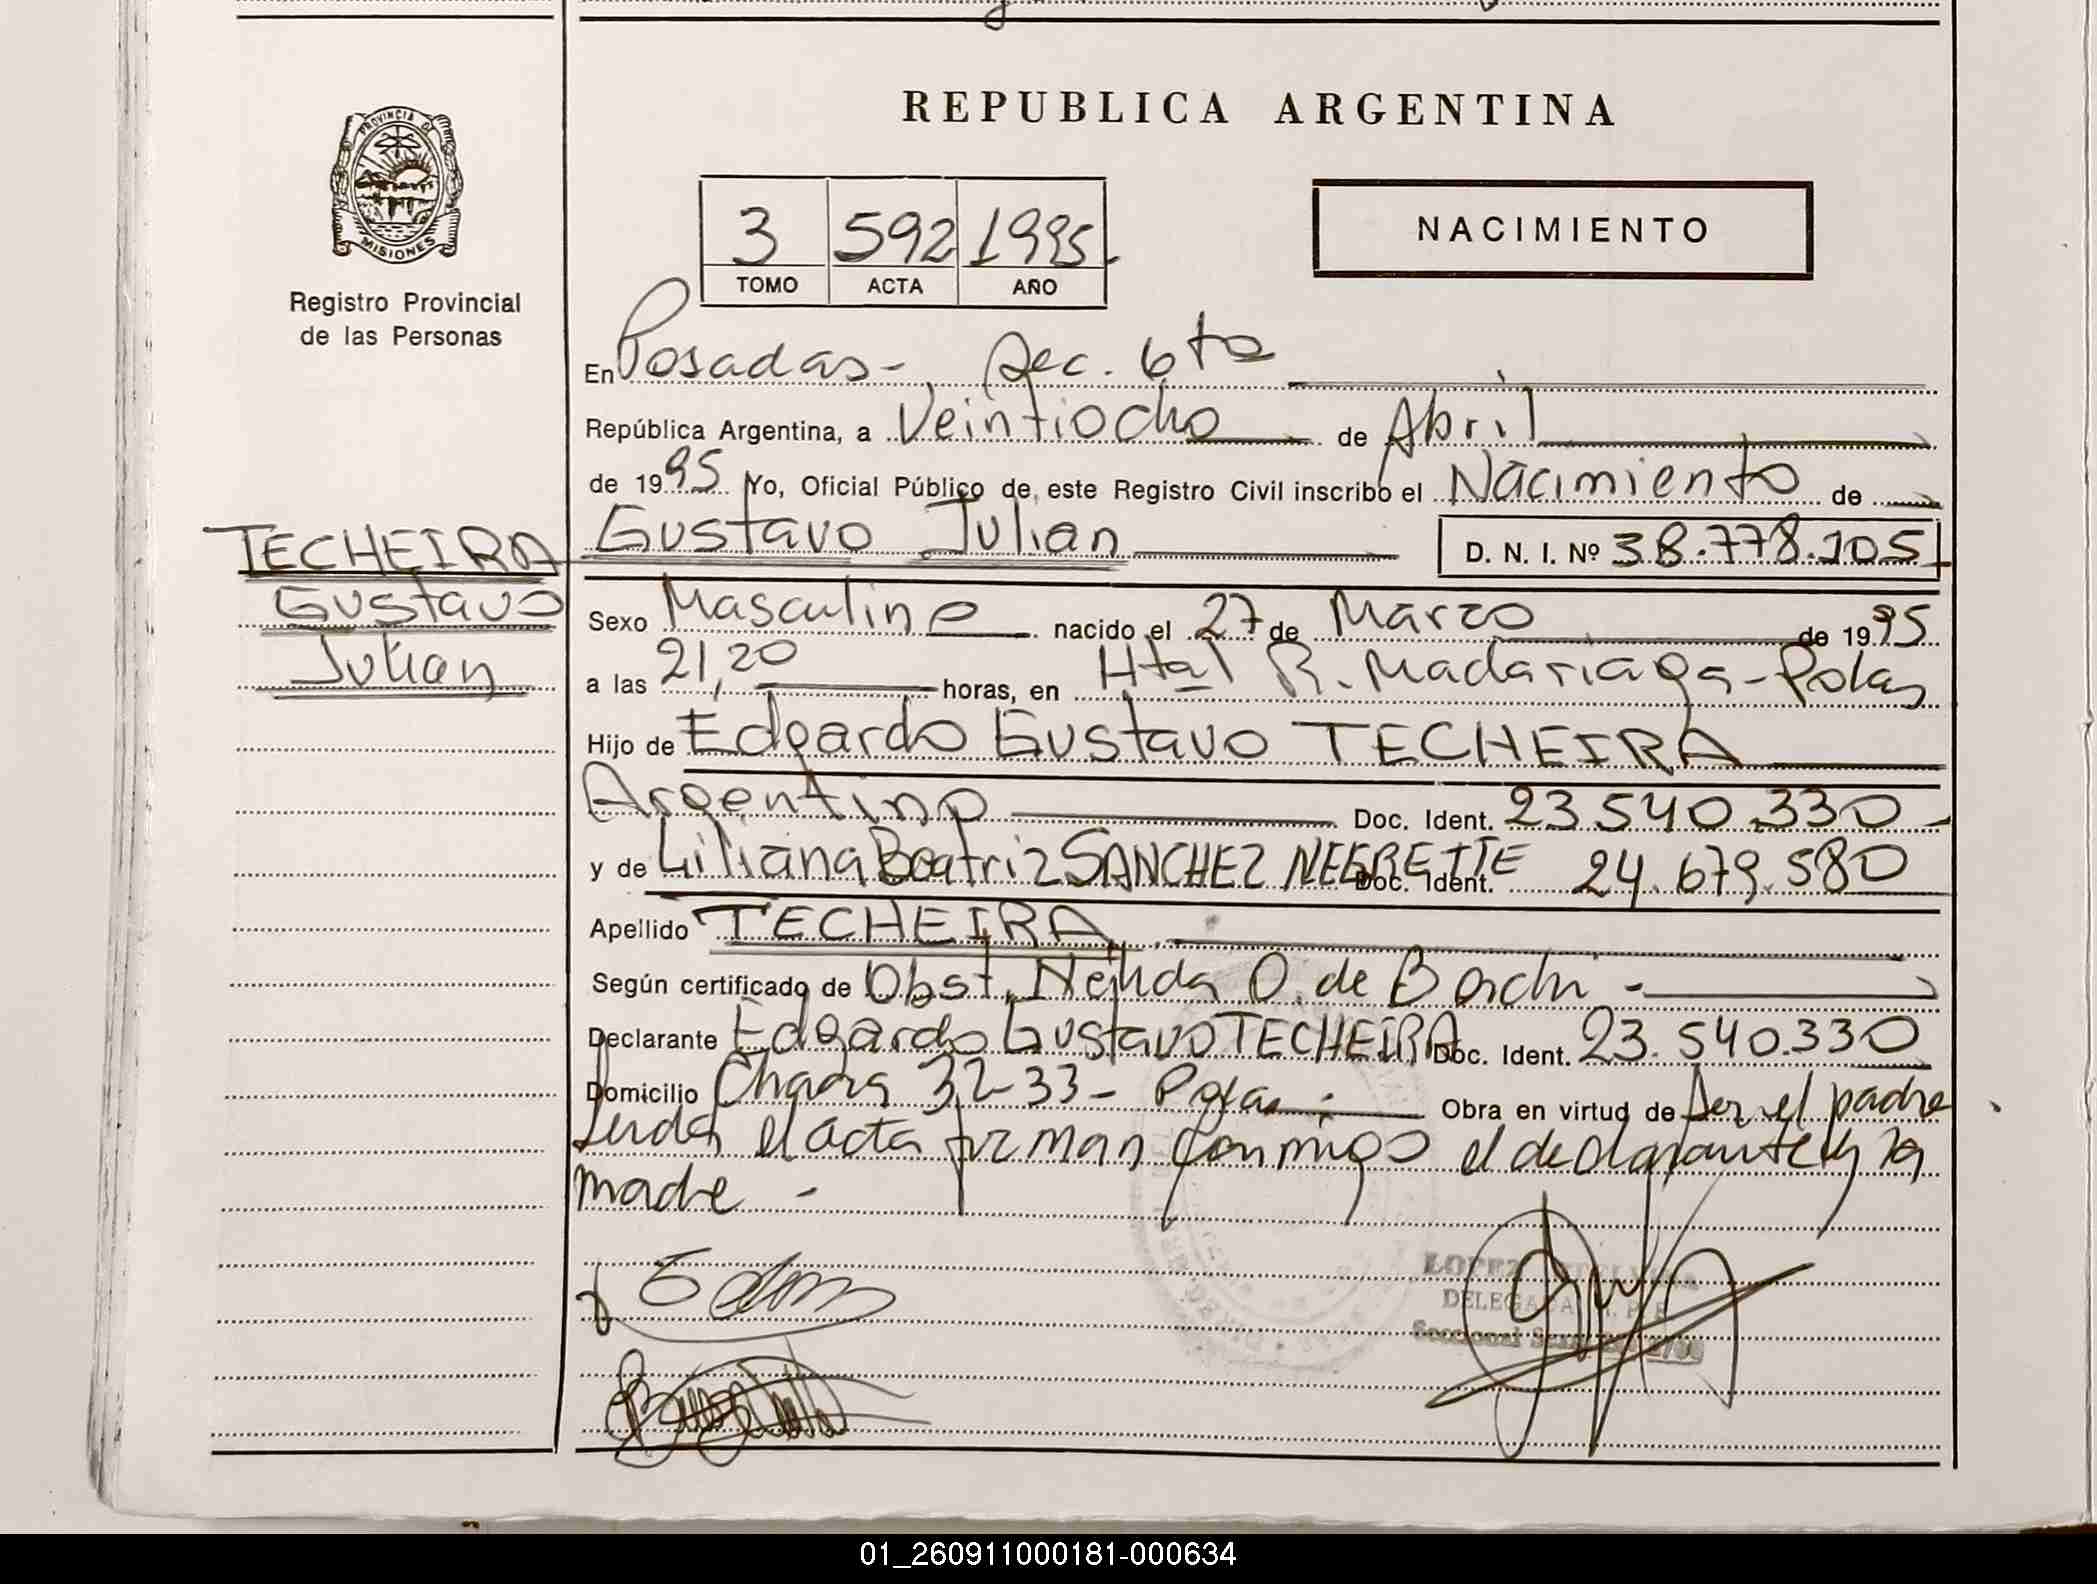 REPUBLICA ARGENTINA
PROVINCIA DE
MISIONES
Registro Provincial
de las Personas
3 592 1995.
TOMO ACTA AÑO
NACIMIENTO
En Posadas-, Sec. 6ta
República Argentina, a Veintiocho de Abril
de 1995 Yo, Oficial Público de este Registro Civil inscribo el Nacimiento de
TECHEIRA Gustavo Julian D. N. I. Nº 38.778.105
Gustavo
Julian
Sexo Masculino nacido el 27 de Marzo de 1995
a las 21,20 horas, en Htal R. Madariaga-Pdas
Hijo de Edgardo Gustavo TECHEIRA
Argentino Doc. Ident. 23.540.330-
y de Liliana Beatriz SANCHEZ NEGRETTE Doc. Ident. 24.679.580
Apellido TECHEIRA
Según certificado de Obst. O. de
Declarante Edgardo Gustavo TECHEIRA Doc. Ident. 23.540.330
Domicilio Chacra 32-33- Pdas Obra en virtud de Ser el padre
Leida el acta firman conmigo el declarante y la
madre -
LOPEZ
DELEGADA
Seccional
01_260911000181-000634